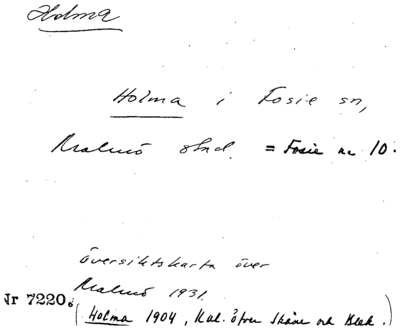 Holma
Holma i Fosie sn,
Malmö stad. = Fosie nr 10.
Översiktskarta över
Malmö 1931.
Nr 7220.
(Holma 1904, Kal. öfver Skåne och Blek.)